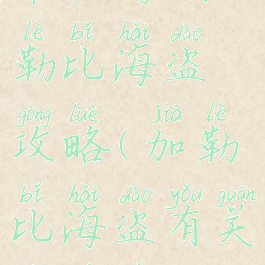 lè bǐ hǎi dào
勒比海盗
gōng lüè jiā lè
攻略(加勒
bǐ hǎi dào yǒu guān
比海盗有关